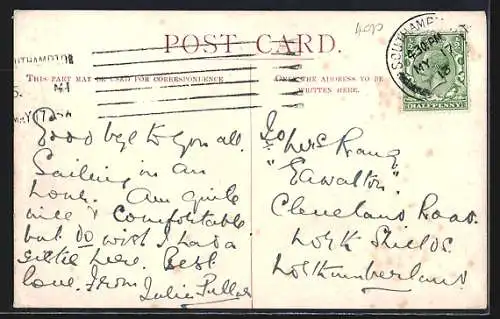 400
POST CARD.
THIS PART MAY BE USED FOR CORRESPONDENCE
ONLY THE ADDRESS TO BE
WRITTEN HERE.
SOUTHAMPTON
MY 17
HALFPENNY
Good bye to you all.
Sailing in an
hour. Am quite
nice & comfortable
but do wish I had a
settee here. Best
love. From Julie
To Mrs
Cleveland Road.
North Shields.
Northumberland